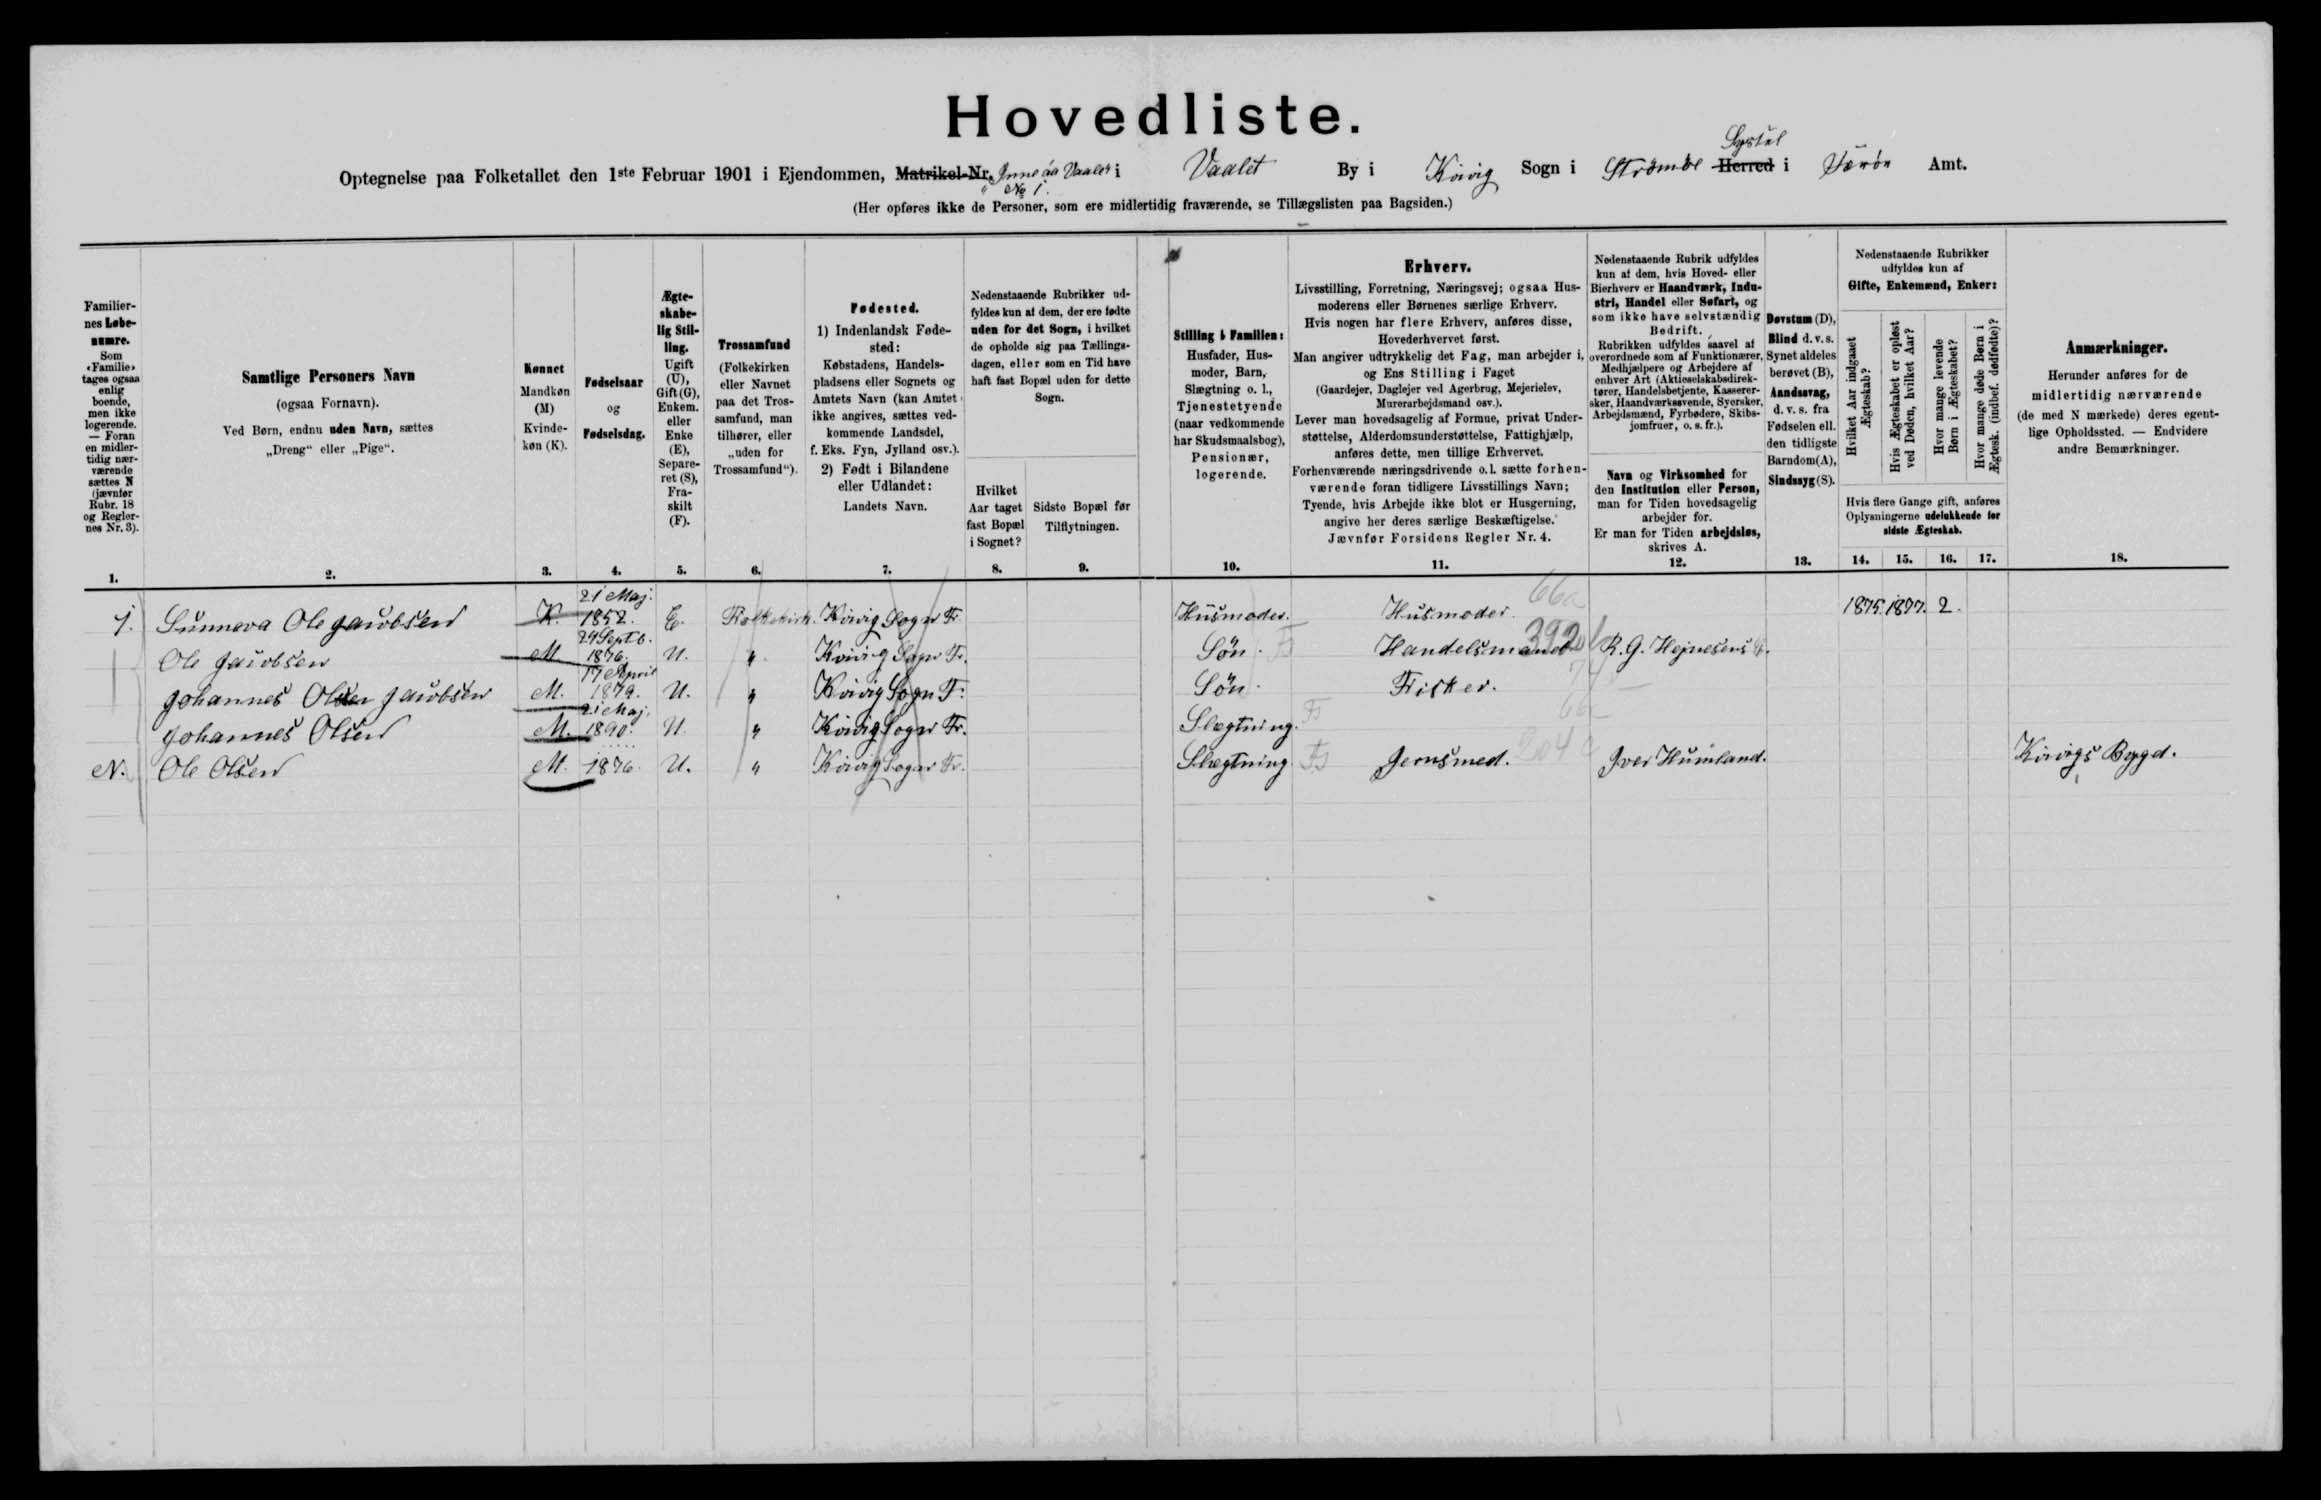 Hovedliste.
Syssel
Optegnelse paa Folketallet den 1ste Februar 1901 i Ejendommen, Matrikel-Nr. Inne áá Vaalet i Vaalet By i Kvivig Sogn i Strömöe Herred i Færöe Amt.
No 1.
(Her opføres ikke de Personer, som ere midlertidig fraværende, se Tillægslisten paa Bagsiden.)
Familier-
nes Løbe-
numre.
Som
«Familie»
tages ogsaa
enlig
boende,
men ikke
logerende.
— Foran
en midler-
tidig nær-
værende
sættes N
(jævnfør
Rubr. 18
og Regler-
nes Nr. 3).
1.
Samtlige Personers Navn
(ogsaa Fornavn).
Ved Børn, endnu uden Navn, sættes
„Dreng“ eller „Pige“.
2.
Kønnet
Mandkøn
(M)
Kvinde-
køn (K).
3.
Fødselsaar
og
Fødselsdag.
4.
Ægte-
skabe-
lig Stil-
ling.
Ugift
(U),
Gift (G),
Enkem.
eller
Enke
(E),
Separe-
ret (S),
Fra-
skilt
(F).
5.
Trossamfund
(Folkekirken
eller Navnet
paa det Tros-
samfund, man
tilhører, eller
„uden for
Trossamfund“).
6.
Fødested.
1) Indenlandsk Føde-
sted:
Købstadens, Handels-
pladsens eller Sognets og
Amtets Navn (kan Amtet
ikke angives, sættes ved-
kommende Landsdel,
f. Eks. Fyn, Jylland osv.).
2) Født i Bilandene
eller Udlandet:
Landets Navn.
7.
Nedenstaaende Rubrikker ud-
fyldes kun af dem, der ere fødte
uden for det Sogn, i hvilket
de opholde sig paa Tællings-
dagen, eller som en Tid have
haft fast Bopæl uden for dette
Sogn.
Hvilket
Aar taget
fast Bopæl
i Sognet?
8.
Sidste Bopæl før
Tilflytningen.
9.
Stilling i Familien:
Husfader, Hus-
moder, Barn,
Slægtning o. l.,
Tjenestetyende
(naar vedkommende
har Skudsmaalsbog),
Pensionær,
logerende.
10.
Erhverv.
Livsstilling, Forretning, Næringsvej; ogsaa Hus-
moderens eller Børnenes særlige Erhverv.
Hvis nogen har flere Erhverv, anføres disse,
Hovederhvervet først.
Man angiver udtrykkelig det Fag, man arbejder i,
og Ens Stilling i Faget
(Gaardejer, Daglejer ved Agerbrug, Mejerielev,
Murerarbejdsmand osv.).
Lever man hovedsagelig af Formue, privat Under-
støttelse, Alderdomsunderstøttelse, Fattighjælp,
anføres dette, men tillige Erhvervet.
Forhenværende næringsdrivende o. l. sætte forhen-
værende foran tidligere Livsstillings Navn;
Tyende, hvis Arbejde ikke blot er Husgerning,
angive her deres særlige Beskæftigelse.
Jævnfør Forsidens Regler Nr. 4.
11.
Nedenstaaende Rubrik udfyldes
kun af dem, hvis Hoved- eller
Bierhverv er Haandværk, Indu-
stri, Handel eller Søfart, og
som ikke have selvstændig
Bedrift.
Rubrikken udfyldes saavel af
overordnede som af Funktionærer,
Medhjælpere og Arbejdere af
enhver Art (Aktieselskabsdirek-
tører, Handelsbetjente, Kasserer-
sker, Haandværkssvende, Syersker,
Arbejdsmænd, Fyrbødere, Skibs-
jomfruer, o. s. fr.).
Navn og Virksomhed for
den Institution eller Person,
man for Tiden hovedsagelig
arbejder for.
Er man for Tiden arbejdsløs,
skrives A.
12.
Døvstum (D),
Blind d. v. s.
Synet aldeles
berøvet (B),
Aandssvag,
d. v. s. fra
Fødselen ell.
den tidligste
Barndom (A),
Sindssyg (S).
13.
Nedenstaaende Rubrikker
udfyldes kun af
Gifte, Enkemænd, Enker:
Hvilket Aar indgaaet
Ægteskab?
Hvis Ægteskabet er opløst
ved Døden, hvilket Aar?
Hvor mange levende
Børn i Ægteskabet?
Hvor mange døde Børn i
Ægtesk. (indbef. dødfødte)?
Hvis flere Gange gift, anføres
Oplysningerne udelukkende for
sidste Ægteskab.
14. 15. 16. 17.
Anmærkninger.
Herunder anføres for de
midlertidig nærværende
(de med N mærkede) deres egent-
lige Opholdssted. — Endvidere
andre Bemærkninger.
18.
1. Sunneva Ole Jacobsen K. 21 Maj. 1852. E. Folkekirk. Kvivig Sogn Fr. Husmoder. Husmoder. 66a 1875. 1897. 2.
Ole Jacobsen M 24 Septb. 1876. U. " Kvivig Sogn Fr. Søn. Handelsmand 392 R. G. Hejnesens
Johannes Olsen Jacobsen M. 17 April 1879. U. " Kvivig Sogn F. Søn. Fisker. 74
Johannes Olsen M. 21 Maj. 1890. U. " Kvivig Sogn Fr. Slægtning.
N. Ole Olsen M. 1876. U. " Kvivig Sogn Fr. Slægtning Jernsmed. 204 Jver Húmland. Kvivigs Bygd.